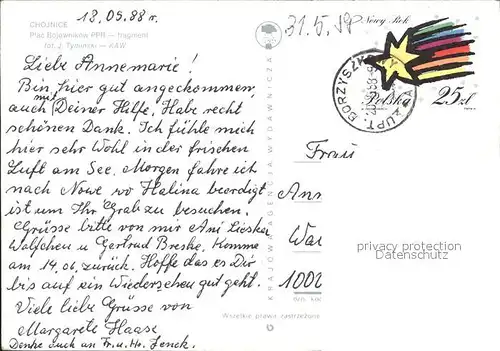 CHOJNICE
Plac Bojowników PPR — fragment
fot. J. Tymiński — KAW
18.05.88 r.
Liebe Annemarie!
Bin hier gut angekommen,
auch mit Deiner Hilfe. Habe recht
schönen Dank. Ich fühle mich
hier sehr Wohl in der frischen
Luft am See. Morgen fahre ich
nach Nowe wo Halina beerdigt
ist um Ihr Grab zu besuchen.
Grüsse bitte von mir Ani Lieske
Walfchen u Gertrud Breske. Komme
am 14.06. zurück. Hoffe das es Dir
bis auf ein Wiedersehen gut geht.
Viele liebe Grüsse von
Margarete Haase
Denke Euch an Fr. u. Hr. Jenck.
KRAJOWA AGENCJA WYDAWNICZA
Wszelkie prawa zastrzeżone
31.5.
Nowy Rok
Polska 25 zł
BORZYSZKOWY
Frau
Ann
Wa
1000
privacy protection
Datenschutz